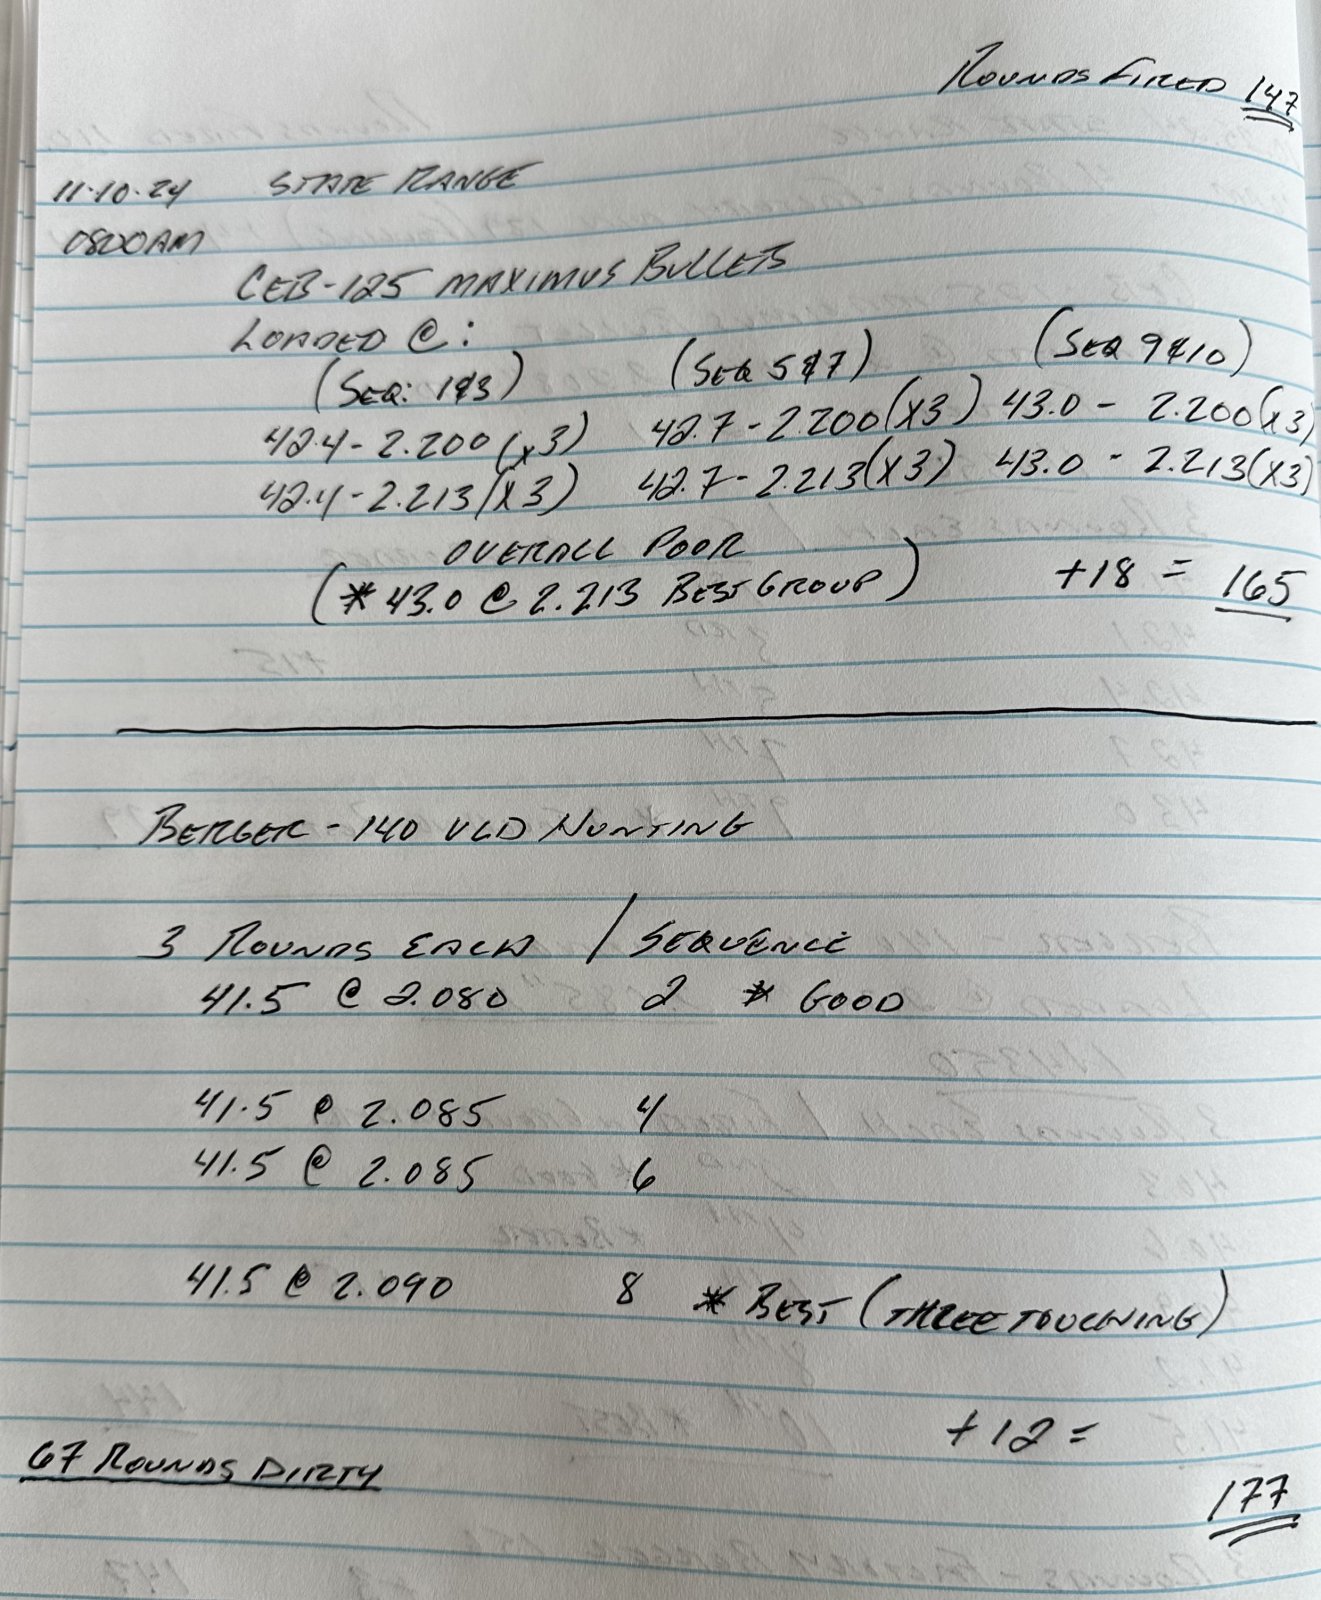 ROUNDS FIRED 147
11·10·24 STATE RANGE
0800AM
CEB-125 MAXIMUS BULLETS
LOADED @:
(SEQ: 1&3) (SEQ 5&7) (SEQ 9&10)
42.4 - 2.200 (x3) 42.7 - 2.200 (x3) 43.0 - 2.200 (x3)
42.4 - 2.213 (x3) 42.7 - 2.213 (x3) 43.0 - 2.213 (x3)
OVERALL POOR
(* 43.0 @ 2.213 BEST GROUP) +18 = 165
BERGER - 140 VLD HUNTING
3 ROUNDS EACH / SEQUENCE
41.5 @ 2.080 2 * GOOD
41.5 @ 2.085 4
41.5 @ 2.085 6
41.5 @ 2.090 8 * BEST (THREE TOUCHING)
+12 =
67 ROUNDS DIRTY
177